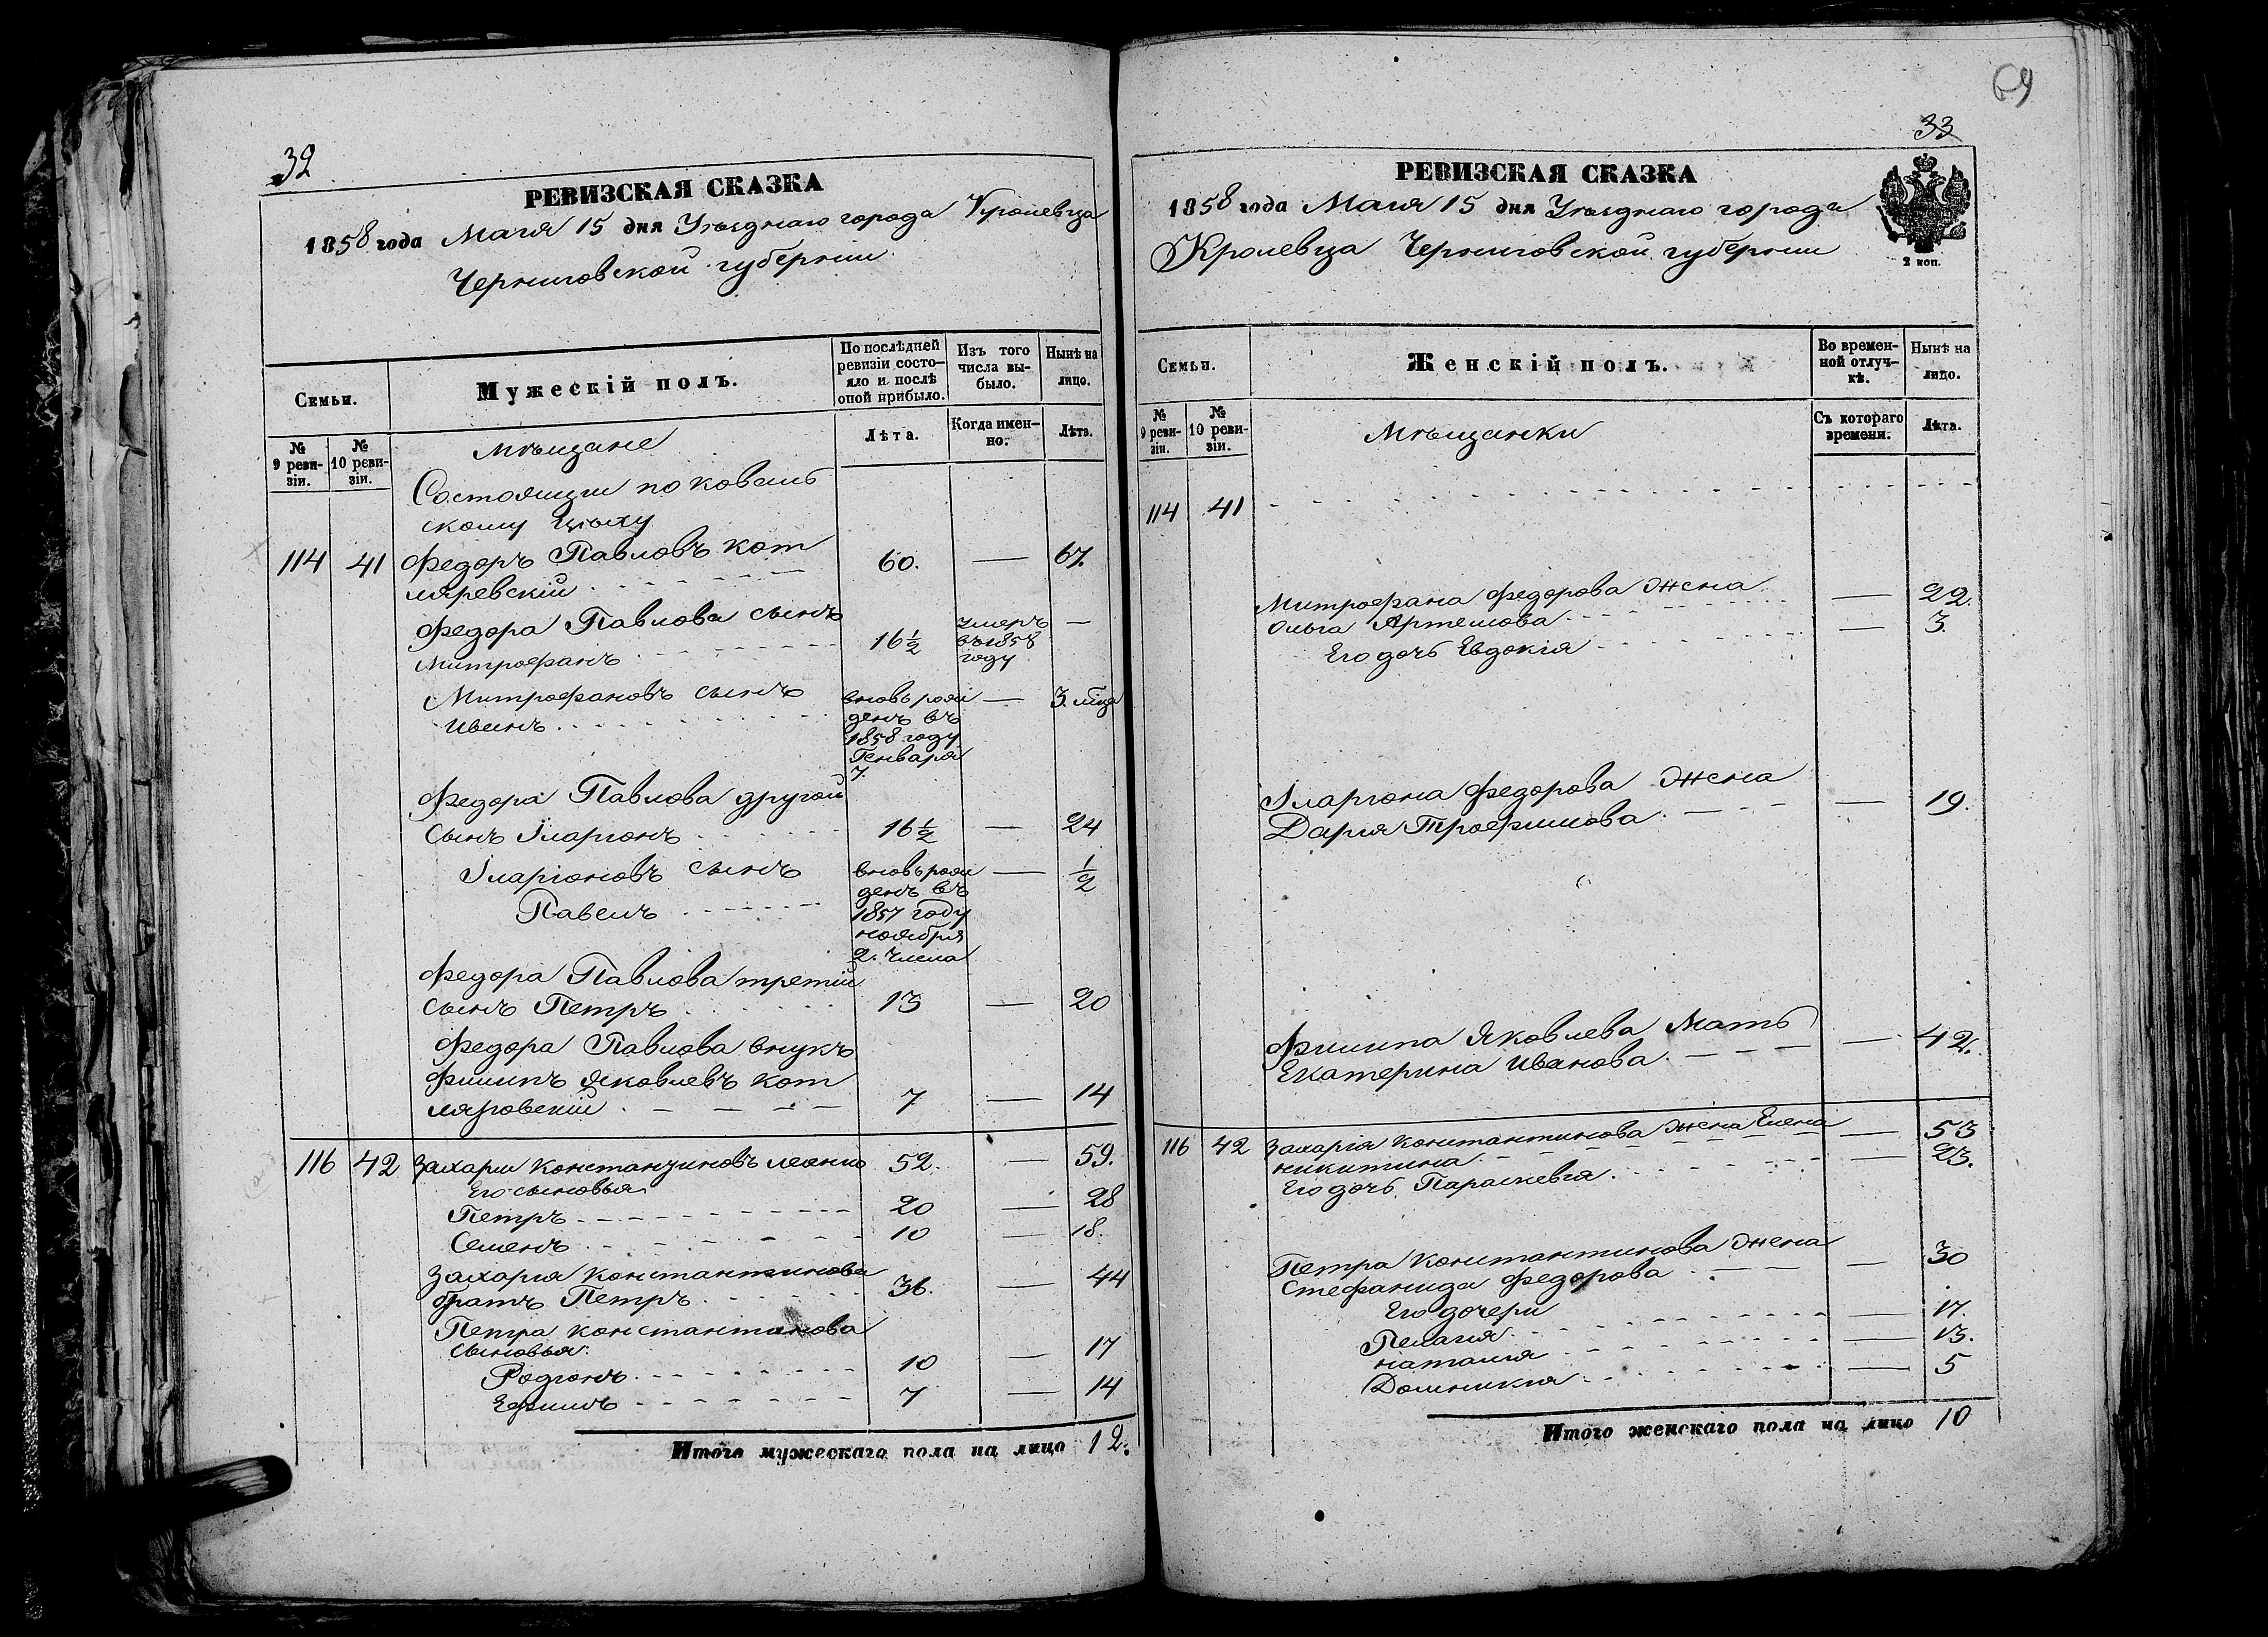 32
РЕВИЗСКАЯ СКАЗКА
1858 года Маія 15 дня Уѣзднаго города Кролевца
Черниговской губерніи
Семьи.
Мужескій полъ.
По послѣдней ревизіи состояло и послѣ оной прибыло.
Изъ того числа выбыло.
Нынѣ на лицо.
№ 9 ревизіи.
№ 10 ревизіи.
Лѣта.
Когда именно.
Лѣта.
Мѣщане
Состоящіи по коваль
скому цѣху
114 41 Федоръ Павловъ кот 60. — 67.
ляревскій
Федора Павлова сынъ 16 ½ умеръ —
Митрофанъ въ 1858
году
Митрофановъ сынъ вновь рож — 3. мѣца
Иванъ денъ въ
1858 году
Генваря
7.
Федора Павлова другой
сынъ Іларіонъ 16 ½ — 24
Іларіоновъ сынъ вновь рож — ½
Павелъ денъ въ
1857 году
ноября
2. числа
Федора Павлова третій
сынъ Петръ 13 — 20
Федора Павлова внукъ
Филипъ Яковлевъ кот 7 — 14
ляровскій
116 42 Захарій Константиновъ 52. — 59.
Его сыновья
Петръ 20 — 28
Семенъ 10 — 18.
Захарія Константинова
братъ Петръ 36. — 44
Петра Константинова
сыновья:
Родіонъ 10 — 17
Ефимъ 7 — 14
Итого мужескаго пола на лицо 12.
69
33
РЕВИЗСКАЯ СКАЗКА
1858 года Маія 15 дня Уѣзднаго города
Кролевца Черниговской губерніи
2 коп.
Семьи.
Женскій полъ.
Во временной отлучкѣ.
Нынѣ на лицо.
№ 9 ревизіи.
№ 10 ревизіи.
Съ котораго времени.
Лѣта.
Мѣщанки
114 41
Митрофана Федорова жена
Ольга Артемова — 22.
Его дочь Евдокія — 3.
Іларіона Федорова жена
Дарія Трофимова — 19.
Филипа Яковлева Мать
Екатерина Иванова — 42.
116 42 Захарія Константинова жена Елена
Никитина — 53
Его дочь Параскевія — 23.
Петра Константинова жена
Стефанида Федорова — 30
Его дочери
Пелагія — 17.
Наталія — 13.
Домникія — 5
Итого женскаго пола на лицо 10